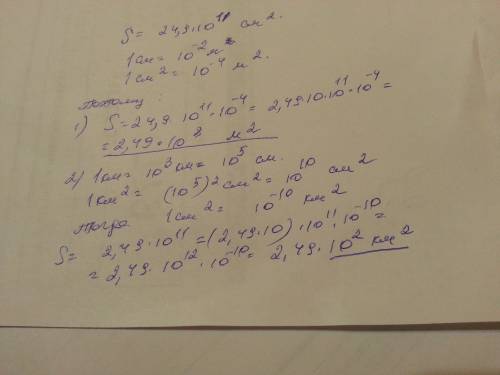 S = 24,9 · 10¹¹ см².
1 см = 10⁻² м
1 см² = 10⁻⁴ м².
поэтому :
1) S = 24,9 · 10¹¹ · 10⁻⁴ = 2,49 · 10 · 10¹¹ · 10⁻⁴ =
= 2,49 · 10⁸ м²
2) 1 км = 10³ км = 10⁵ см.
1 км² = (10⁵)² см² = 10¹⁰ см²
тогда 1 см² = 10⁻¹⁰ км²
S = 2,49 · 10¹¹ = (2,49 · 10) · 10¹¹ · 10⁻¹⁰ =
= 2,49 · 10¹² · 10⁻¹⁰ = 2,49 · 10² км²